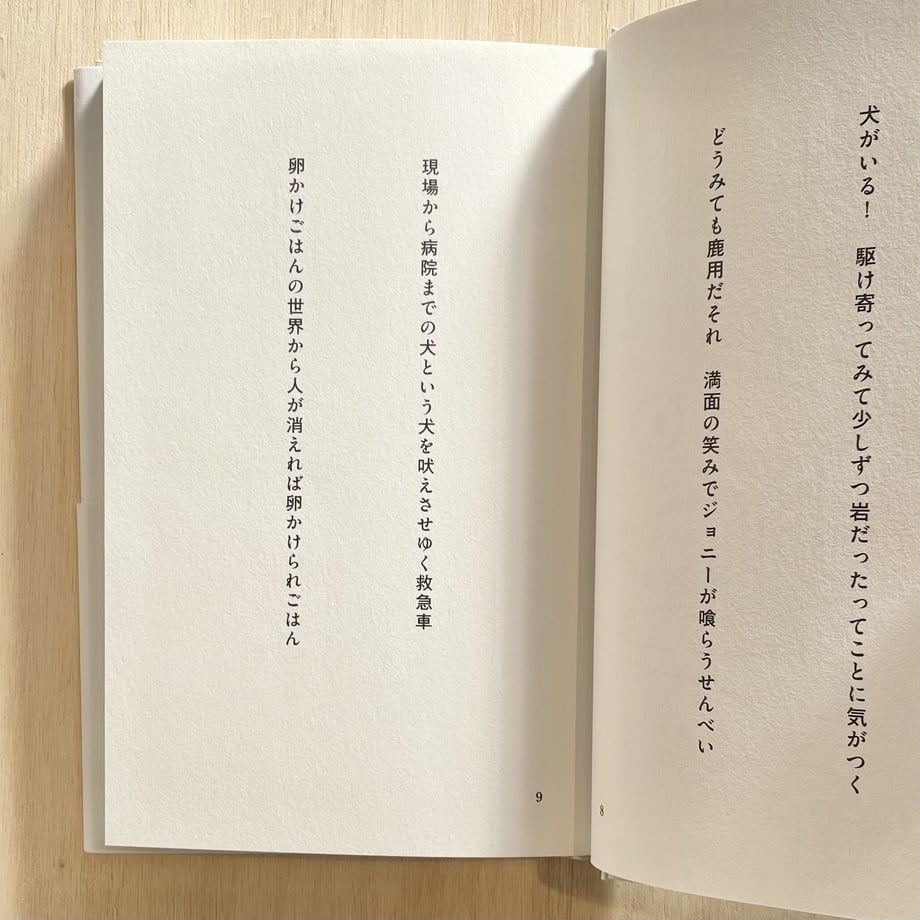 犬がいる！　駆け寄ってみて少しずつ岩だったってことに気がつく
どうみても鹿用だそれ　満面の笑みでジョニーが喰らうせんべい
8
現場から病院までの犬という犬を吠えさせゆく救急車
卵かけごはんの世界から人が消えれば卵かけられごはん
9